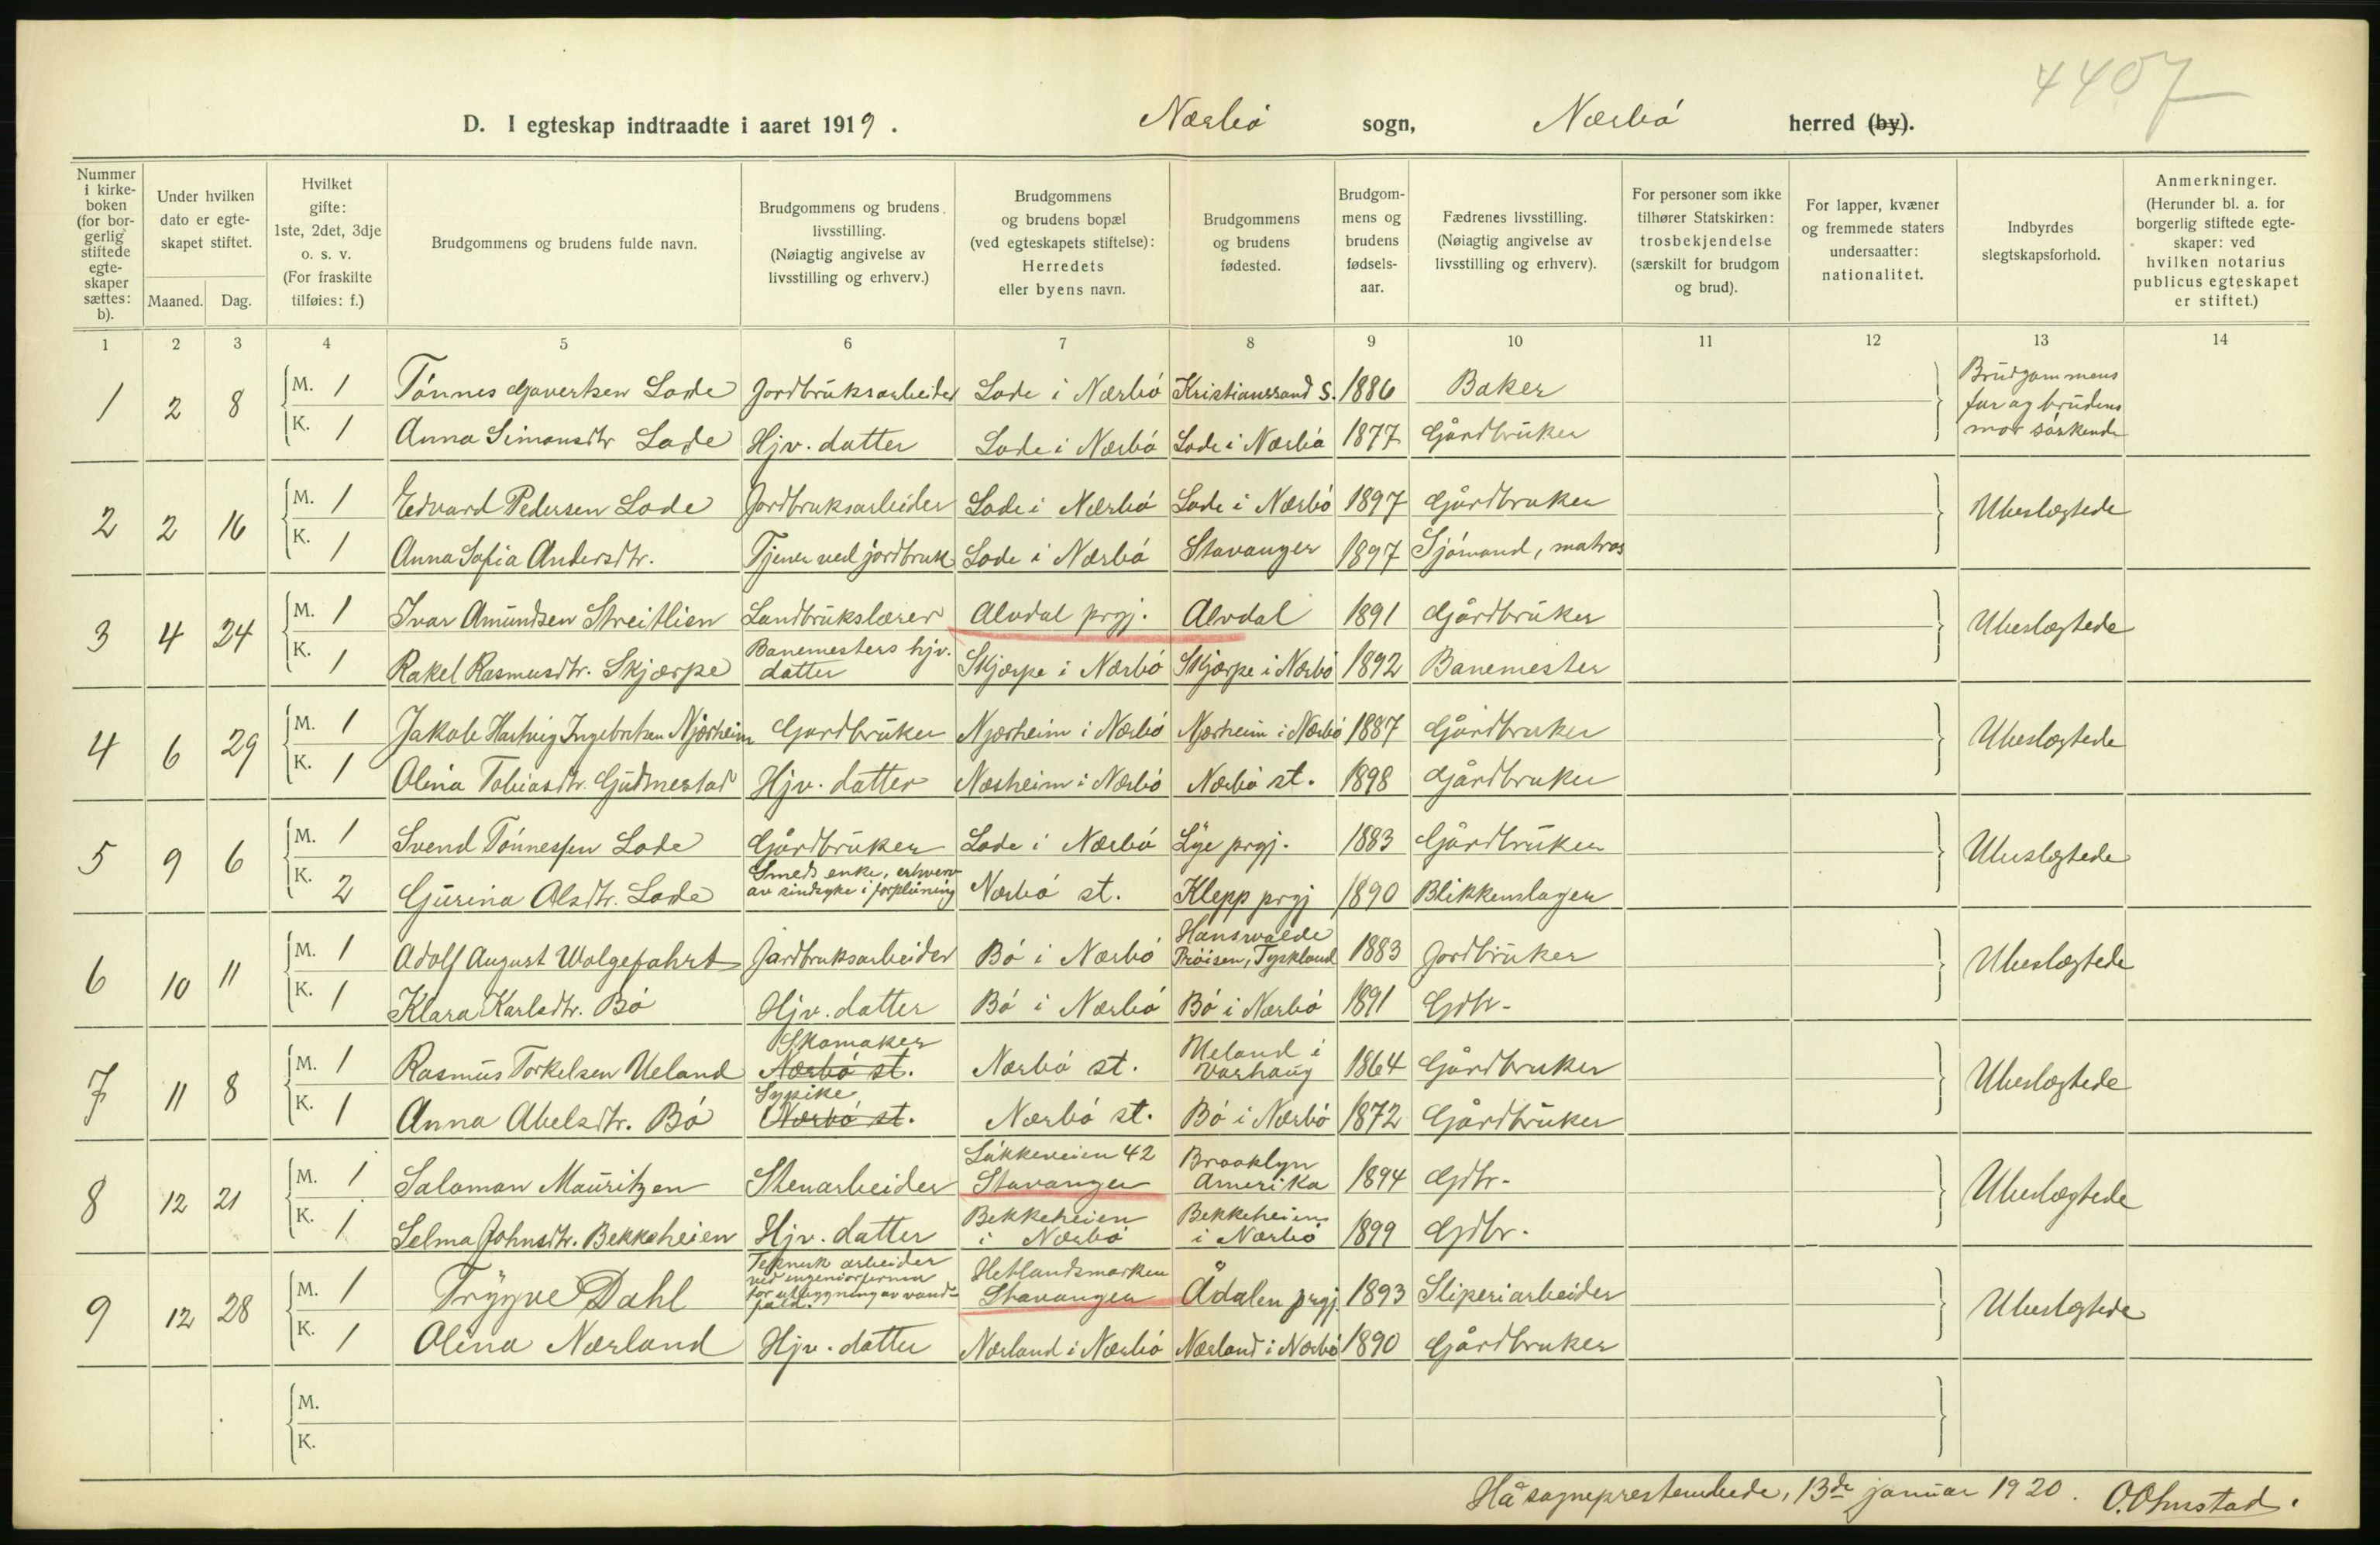 4407
D. I egteskap indtraadte i aaret 1919. Nærbö sogn, Nærbö herred (by).
Nummer i kirke- boken (for bor- gerlig stiftede egte- skaper sættes: b).
Under hvilken dato er egte- skapet stiftet.
Maaned. Dag.
Hvilket gifte: 1ste, 2det, 3dje o. s. v. (For fraskilte tilføies: f.)
Brudgommens og brudens fulde navn.
Brudgommens og brudens livsstilling. (Nøiagtig angivelse av livsstilling og erhverv.)
Brudgommens og brudens bopæl (ved egteskapets stiftelse): Herredets eller byens navn.
Brudgommens og brudens fødested.
Brudgom- mens og brudens fødsels- aar.
Fædrenes livsstilling. (Nøiagtig angivelse av livsstilling og erhverv).
For personer som ikke tilhører Statskirken: trosbekjendelse (særskilt for brudgom og brud).
For lapper, kvæner og fremmede staters undersaatter: nationalitet.
Indbyrdes slegtskapsforhold.
Anmerkninger. (Herunder bl. a. for borgerlig stiftede egte- skaper: ved hvilken notarius publicus egteskapet er stiftet.)
1 2 3 4 5 6 7 8 9 10 11 12 13 14
1 2 8 M. 1 Tönnes Govertsen Lode Jordbruksarbeider Lode i Nærbö Kristianssand S. 1886 Baker Brudgommens far og brudens mor söskende
K. 1 Anna Simonsdtr Lode Hjv. datter Lode i Nærbö Lode i Nærbö 1877 Gårdbruker
2 2 16 M. 1 Edvard Pedersen Lode Jordbruksarbeider Lode i Nærbö Lode i Nærbö 1897 Gårdbruker Ubeslægtede
K. 1 Anna Sofia Andersdtr. Tjener ved jordbruk Lode i Nærbö Stavanger 1897 Sjömand, matros
3 4 24 M. 1 Ivar Amundsen Streitlien Landbrukslærer Alvdal prgj. Alvdal 1891 Gårdbruker Ubeslægtede
K. 1 Rakel Rasmusdtr. Skjærpe Banemesters hjv. datter Skjærpe i Nærbö Skjærpe i Nærbö 1892 Banemester
4 6 29 M. 1 Jakob Hartvig Ingebretsen Njærheim Gardbruker Njærheim i Nærbö Njærheim i Nærbö 1887 Gårdbruker Ubeslægtede
K. 1 Olina Tobiasdtr. Gudmestad Hjv. datter Næsheim i Nærbö Nærbö st. 1898 Gårdbruker
5 9 6 M. 1 Svend Tönnessen Lode Gårdbruker Lode i Nærbö Lye prgj. 1883 Gårdbruker Ubeslægtede
K. 2 Gurina Olsdtr. Lode Smeds enke, erhverv av sindsyke i forpleining Nærbö st. Klepp prgj 1890 Blikkenslager
6 10 11 M. 1 Adolf August Wolgefahrt Jordbruksarbeider Bö i Nærbö Hanswalde Pröisen, Tyskland 1883 Jordbruker Ubeslægtede
K. 1 Klara Karlsdtr. Bö Hjv. datter Bö i Nærbö Bö i Nærbö 1891 Gdbr.
7 11 8 M. 1 Rasmus Torkelsen Ueland Skomaker Nærbö st. Nærbö st. Ueland i Varhaug 1864 Gårdbruker Ubeslægtede
K. 1 Anna Abelsdtr. Bö Sypike Nærbö st. Nærbö st. Bö i Nærbö 1872 Gårdbruker
8 12 21 M. 1 Salomon Mauritzen Stenarbeider Lökkeveien 42 Stavanger Brooklyn Amerika 1894 Gdbr. Ubeslægtede
K. 1 Selma Johnsdtr. Bekkeheien Hjv. datter Bekkeheien i Nærbö Bekkeheien i Nærbö 1899 Gdbr.
9 12 28 M. 1 Trygve Dahl Teknisk arbeider ved ingeniörfirma for utbygning av vandfald. Hetlandsmarken Stavanger Ådalen prgj. 1893 Sliperiarbeider Ubeslægtede
K. 1 Olina Nærland Hjv. datter Nærland i Nærbö Nærland i Nærbö 1890 Gårdbruker
M.
K.
Hå sogneprestembede, 13de januar 1920. O. Olmstad.